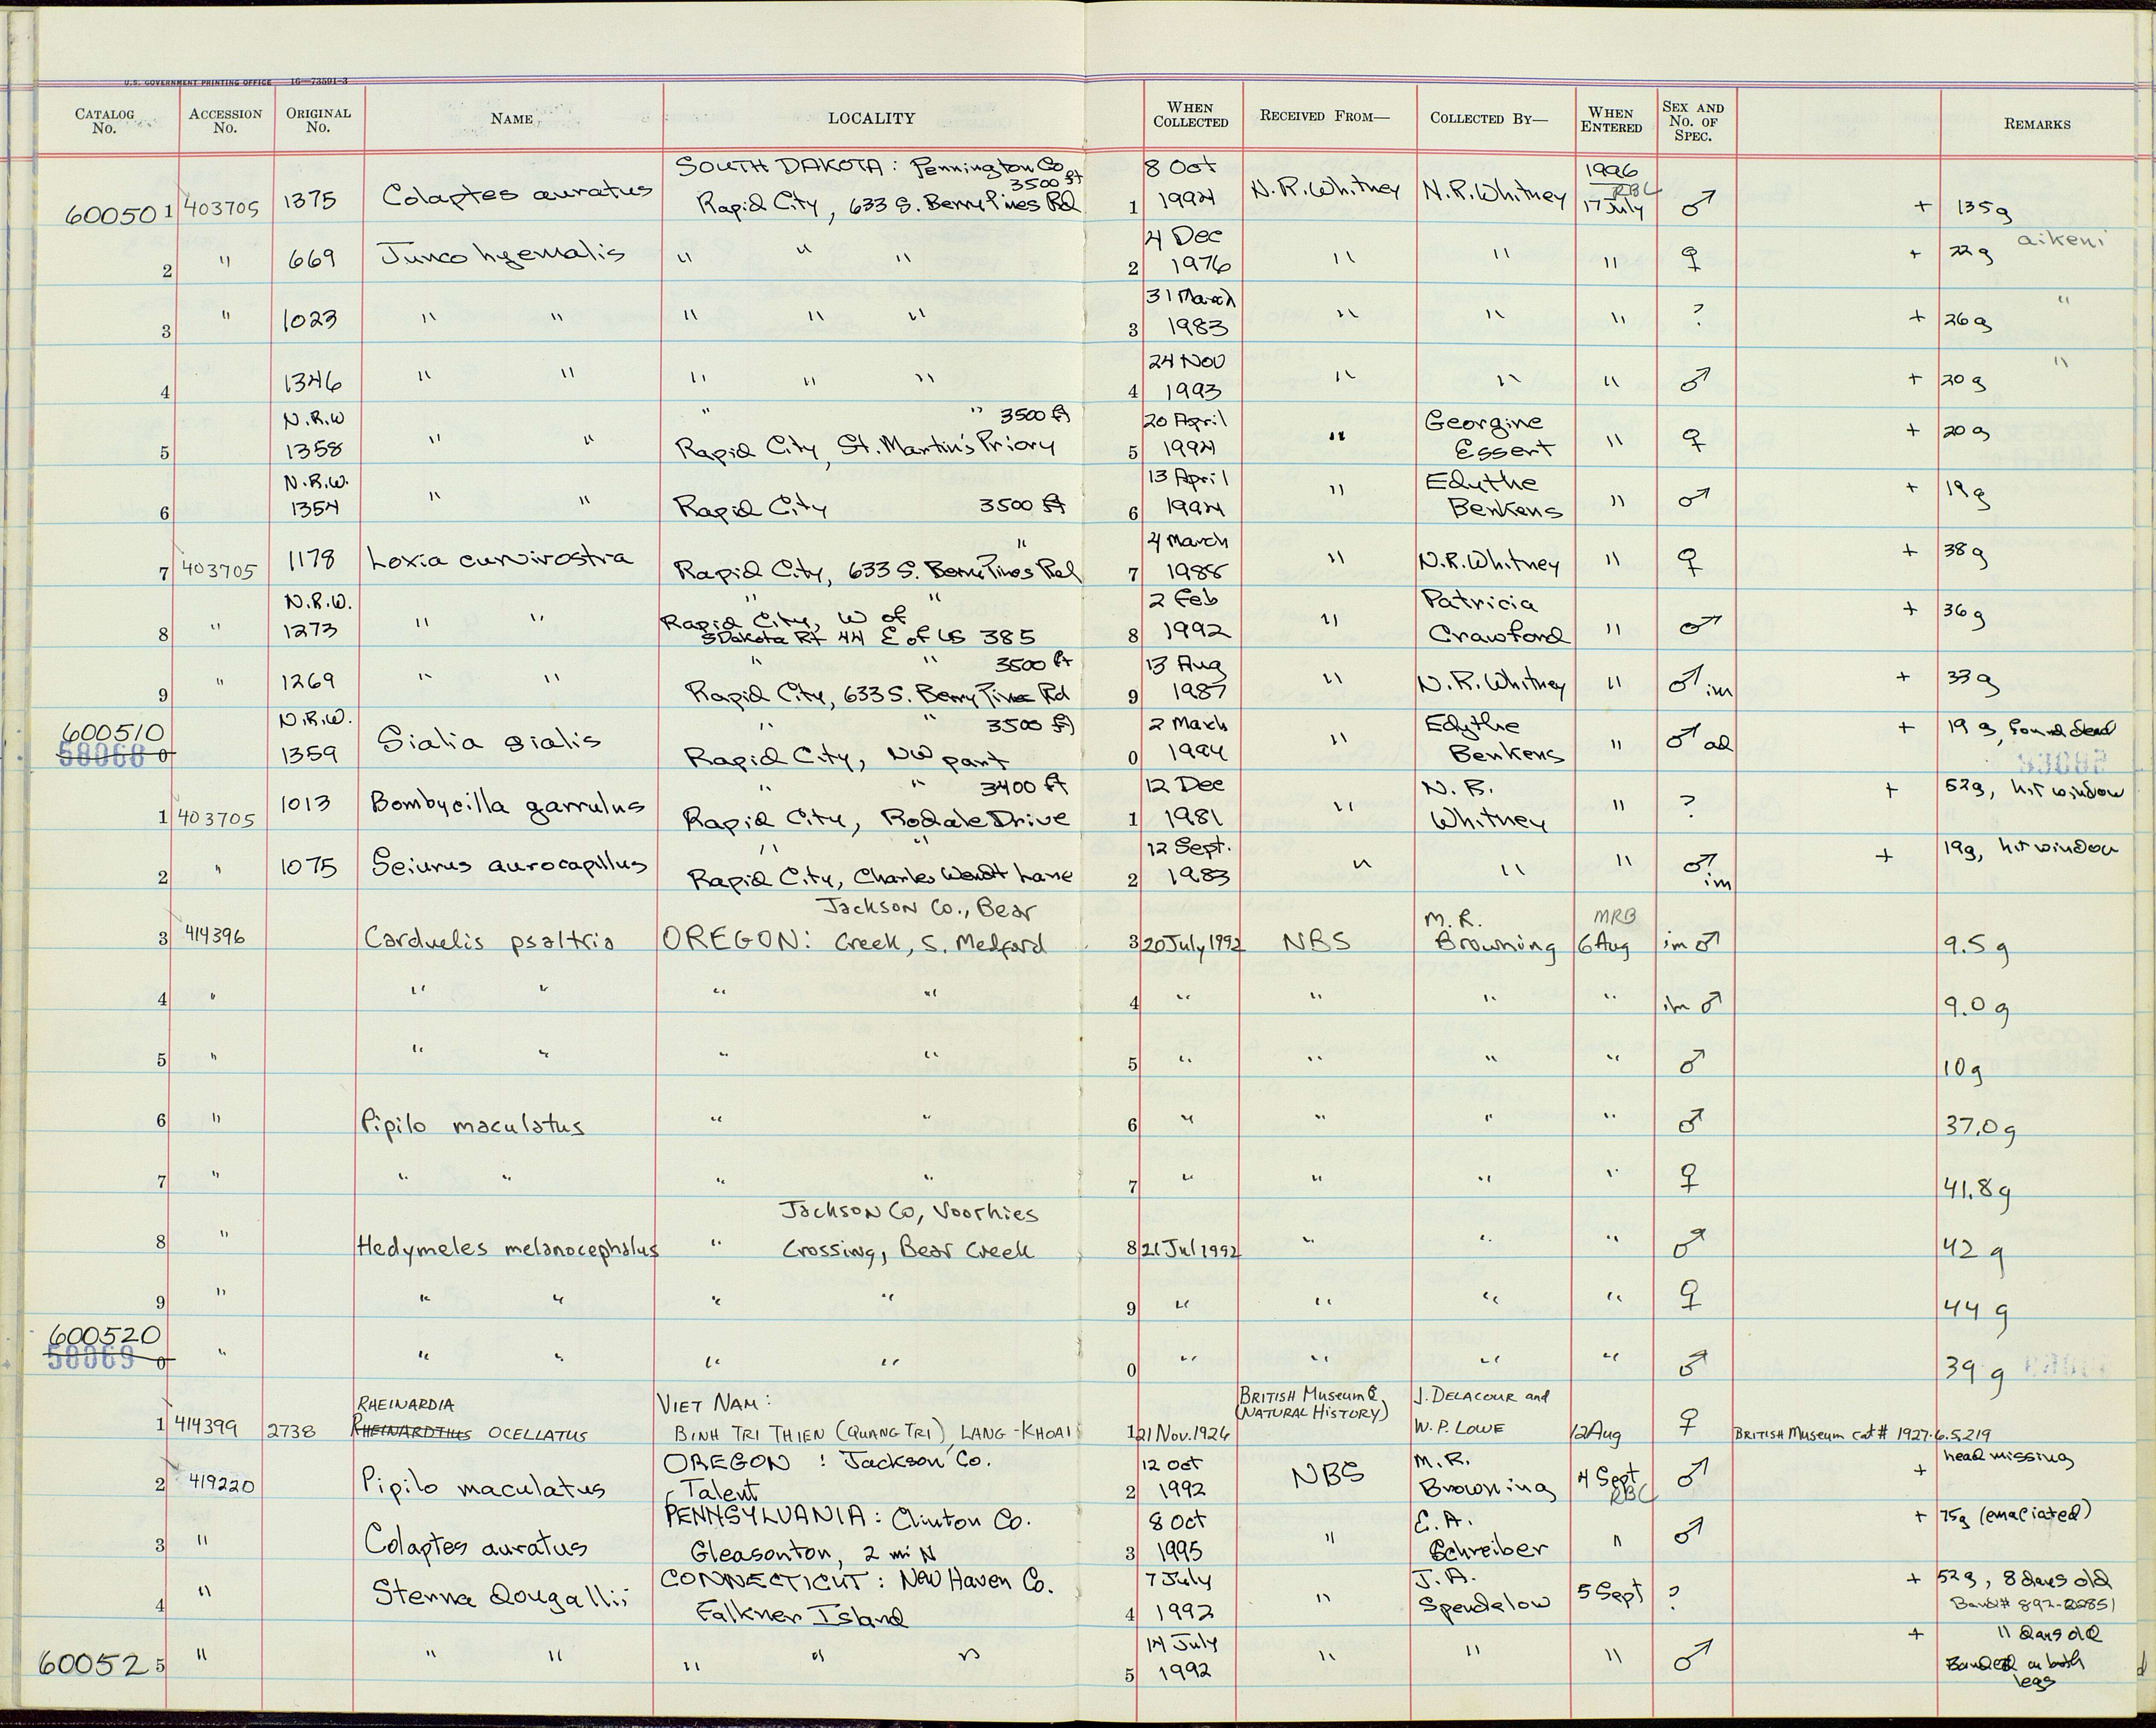 U.S. GOVERNMENT PRINTING OFFICE 16—73591-3
CATALOG No. ACCESSION No. ORIGINAL No. NAME LOCALITY WHEN COLLECTED RECEIVED FROM— COLLECTED BY— WHEN ENTERED SEX AND No. OF SPEC. REMARKS
SOUTH DAKOTA: Pennington Co 8 Oct 1996
3500 ft RBC
600501 403705 1375 Colaptes auratus Rapid City, 633 S. Berry Pines Rd 1 1994 N.R.Whitney N.R.Whitney 17 July ♂ + 135g
4 Dec aikeni
2 " 669 Junco hyemalis " " " 2 1976 " " " ♀ + 22g
31 March "
3 " 1023 " " " " " 3 1983 " " " ? + 26g
24 Nov "
4 1346 " " " " " 4 1993 " " " ♂ + 20g
N.R.W " " 3500 ft 20 April Georgine
5 1358 " " Rapid City, St. Martin's Priory 5 1994 " Essert " ♀ + 20g
N.R.W. 13 April Edythe
6 1354 " " Rapid City 3500 ft 6 1994 " Benkens " ♂ + 19g
" 4 March
7 403705 1178 Loxia curvirostra Rapid City, 633 S. Berry Pines Rd 7 1988 " N.R.Whitney " ♀ + 38g
N.R.W. " " 2 Feb Patricia
Rapid City, W of
8 " 1273 " " S Dakota Rt 44 E of US 385 8 1992 " Crawford " ♂ + 36g
" " 3500 ft 13 Aug
9 " 1269 " " Rapid City, 633 S. Berry Pines Rd 9 1987 " N.R.Whitney " ♂ im + 33g
600510 N.R.W. " " 3500 ft 2 March Edythe
58068 0 1359 Sialia sialis Rapid City, NW part 0 1994 " Benkens " ♂ ad + 19g, found dead
" " 3400 ft 12 Dec N.R.
1 403705 1013 Bombycilla garrulus Rapid City, Rodale Drive 1 1981 " Whitney " ? + 52g, hit window
" " 12 Sept.
2 " 1075 Seiurus aurocapillus Rapid City, Charles Wendt Lane 2 1983 " " " ♂ im + 19g, hit window
Jackson Co., Bear M.R. MRB
3 414396 Carduelis psaltria OREGON: Creek, S. Medford 3 20 July 1992 NBS Browning 6 Aug im ♂ 9.5 g
4 " " " " " 4 " " " " im ♂ 9.0 g
5 " " " " " 5 " " " " ♂ 10g
6 " Pipilo maculatus " " 6 " " " " ♂ 37.0g
7 " " " " " 7 " " " " ♀ 41.8g
Jackson Co, Voorhies
8 " Hedymeles melanocephalus " Crossing, Bear Creek 8 21 Jul 1992 " " " ♂ 42 g
9 " " " " " 9 " " " " ♀ 44 g
600520
58069 0 " " " " " 0 " " " " ♂ 39 g
RHEINARDIA VIET NAM: BRITISH Museum (NATURAL HISTORY) J. DELACOUR and
1 414399 2738 RHEINARDTIUS OCELLATUS BINH TRI THIEN (QUANG TRI), LANG-KHOAI 1 21 Nov. 1926 W.P. LOWE 12 Aug ♀ BRITISH Museum cat# 1927.6.5.219
OREGON: Jackson Co. 12 Oct M.R. head missing
2 419220 Pipilo maculatus Talent 2 1992 NBS Browning 4 Sept RBC ♂ +
PENNSYLVANIA: Clinton Co. 8 Oct E.A. + 75g (emaciated)
3 " Colaptes auratus Gleasonton, 2 mi N 3 1995 " Schreiber " ♂
CONNECTICUT: New Haven Co. 7 July J.A. + 52g, 8 days old
4 " Sterna dougallii Falkner Island 4 1992 " Spendelow 5 Sept ? Band# 892-22851
14 July + 11 days old
600525 " " " " " " 5 1992 " " " ♂ Banded on both
legs